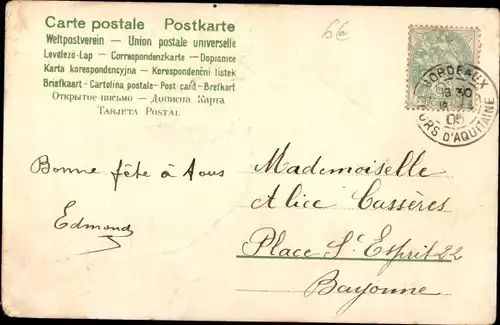 Carte postale Postkarte
Weltpostverein — Union postale universelle
Levelező-Lap — Correspondenzkarte — Dopisnice
Karta korespondencyjna — Korespondenční lístek
Briefkaart - Cartolina postale - Post card - Brefkort
Открытое-письмо — Дописна Карта
Tarjeta Postal
6€
BORDEAUX
18 30
05
CRS D'AQUITAINE
Bonne fête à tous
Edmond
Mademoiselle
Alice Cassères
Place St Esprit 22
Bayonne